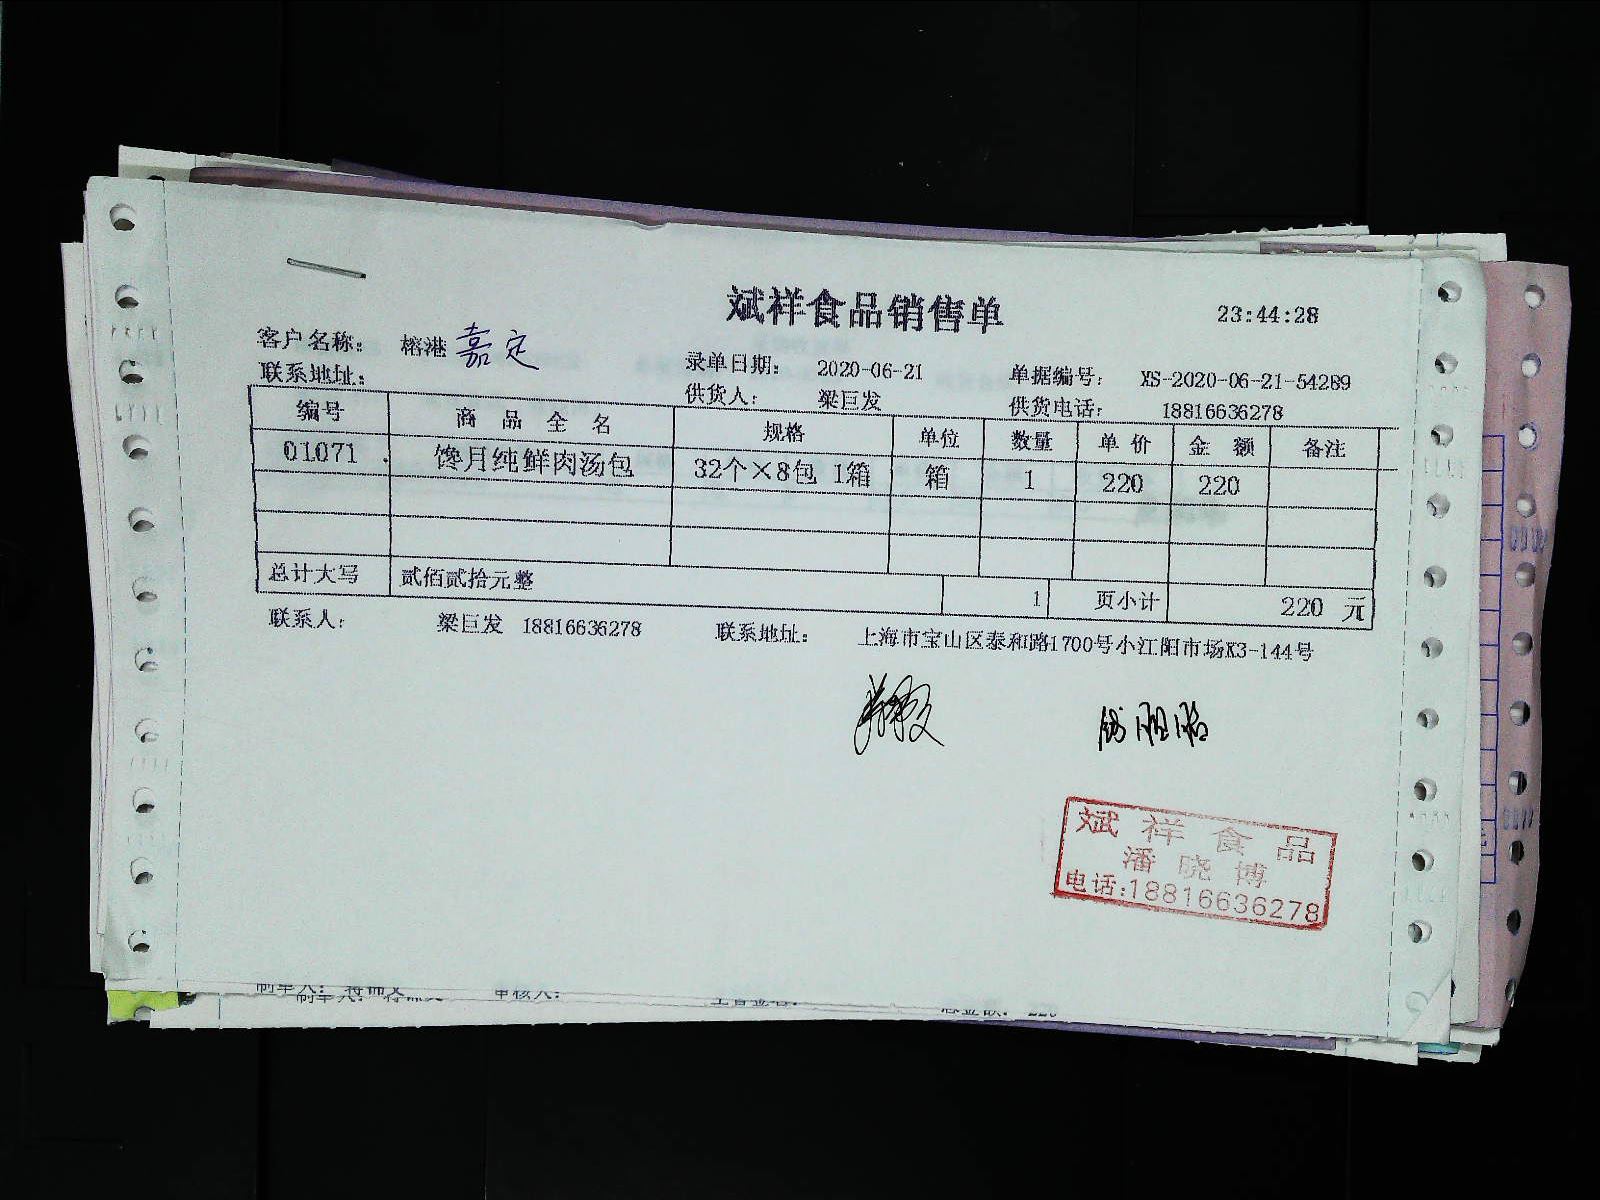 斌祥食品销售单 23:44:28
客户名称： 榕港 嘉定 录单日期： 2020-06-21 单据编号： XS-2020-06-21-54289
联系地址： 供货人： 梁巨发 供货电话： 18816636278
编号 商品全名 规格 单位 数量 单价 金额 备注
01071 馋月纯鲜肉汤包 32个×8包 1箱 箱 1 220 220
总计大写 贰佰贰拾元整 1 页小计 220 元
联系人： 梁巨发 18816636278 联系地址： 上海市宝山区泰和路1700号小江阳市场K3-144号
斌祥食品
潘晓博
电话:18816636278
制单人： 审核人：